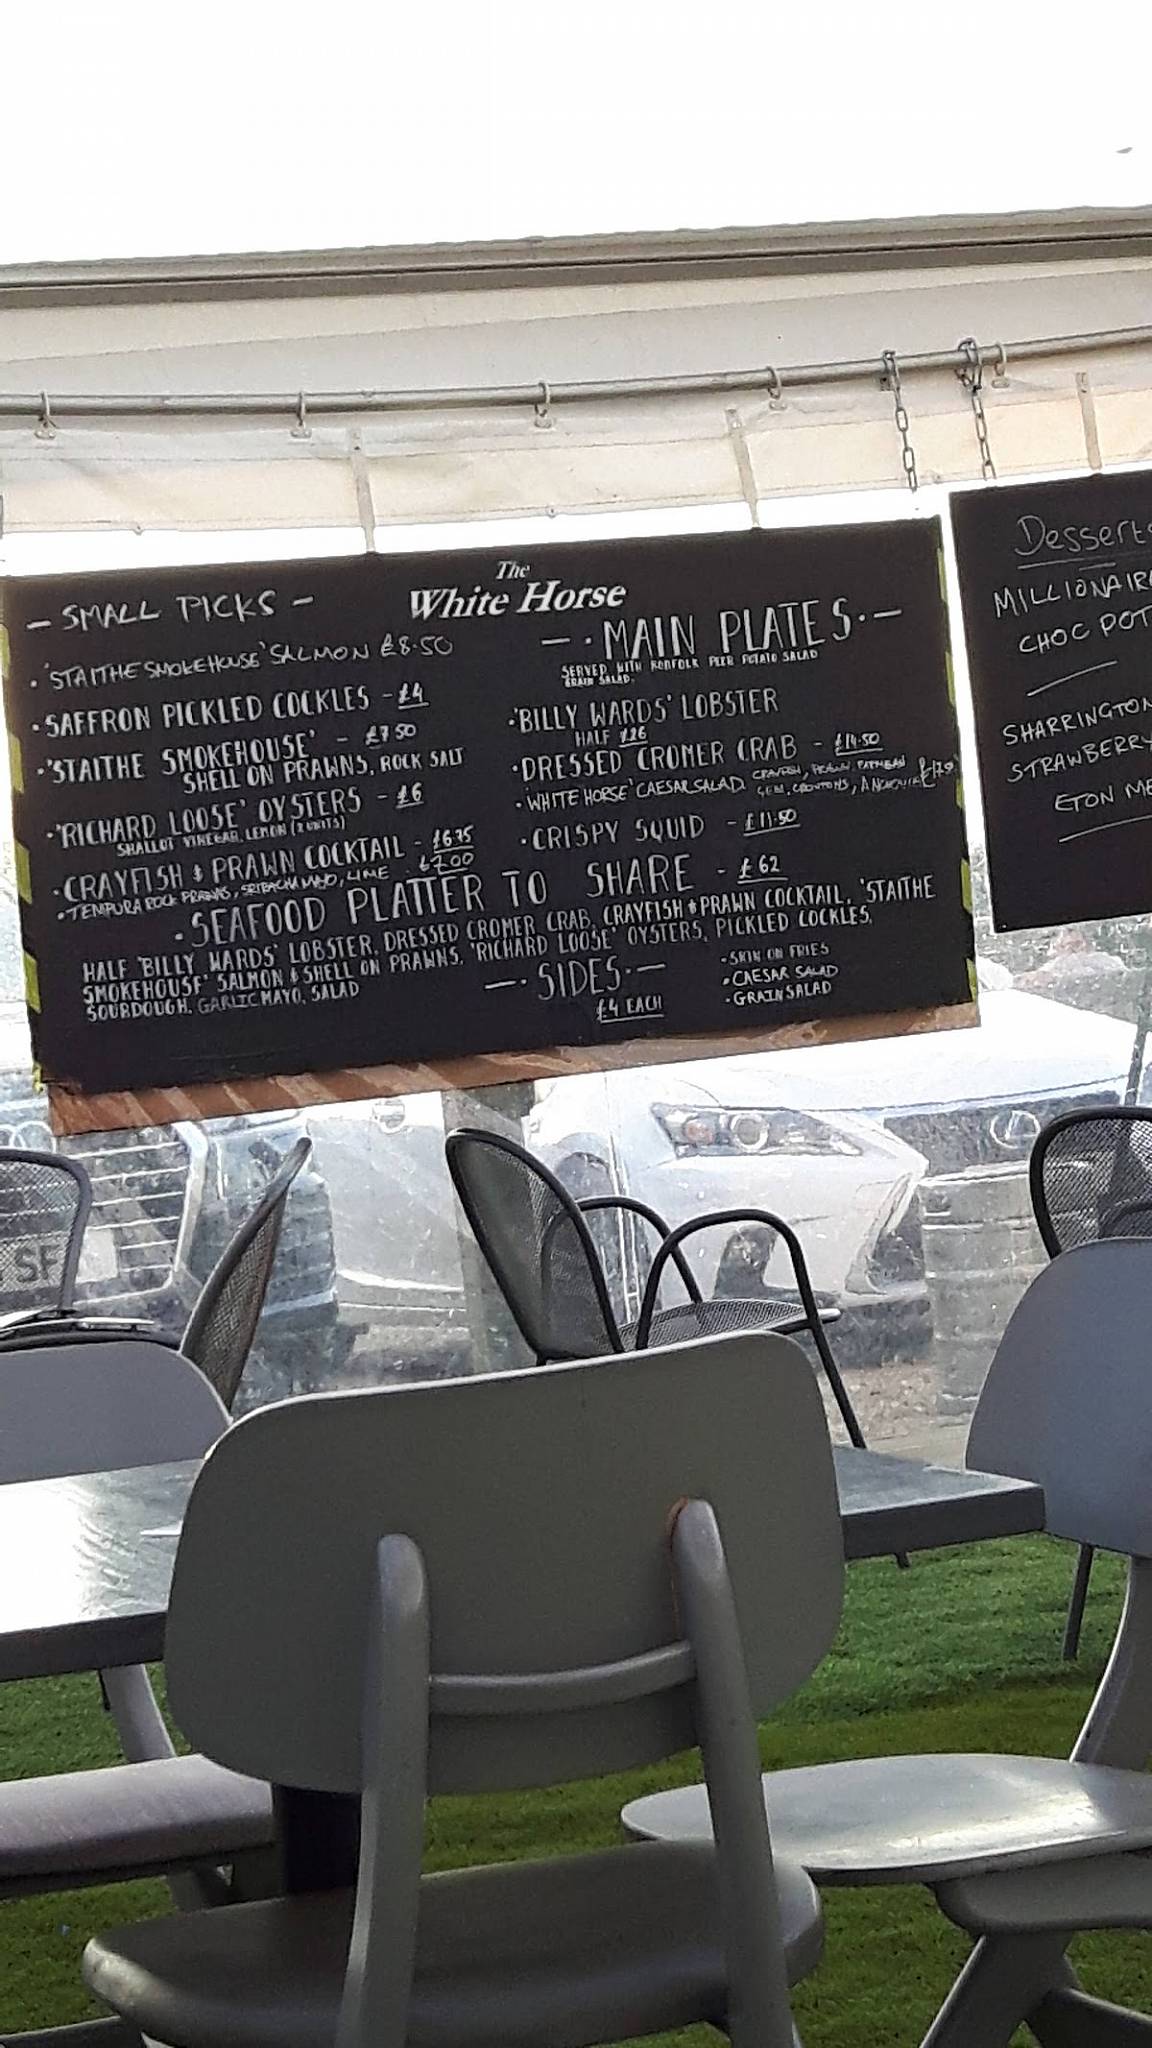 The
White Horse
- SMALL PICKS -
• 'STAITHE SMOKEHOUSE' SALMON £8.50
• SAFFRON PICKLED COCKLES - £4
• 'STAITHE SMOKEHOUSE' - £7.50
SHELL ON PRAWNS, ROCK SALT
• 'RICHARD LOOSE' OYSTERS - £6
SHALLOT VINEGAR, LEMON (2 UNITS)
• CRAYFISH & PRAWN COCKTAIL - £6.75
• TEMPURA ROCK PRAWNS, SRIRACHA MAYO, LIME £7.00
- • MAIN PLATES • -
SERVED WITH NORFOLK PEER POTATO SALAD
GRAIN SALAD.
• 'BILLY WARDS' LOBSTER
HALF £26
• DRESSED CROMER CRAB - £14.50
• 'WHITE HORSE' CAESAR SALAD CRAYFISH, PRAWN, PARMESAN
GEM, CROUTONS, ANCHOVIES
• CRISPY SQUID - £11.50
• SEAFOOD PLATTER TO SHARE - £62
HALF 'BILLY WARDS' LOBSTER, DRESSED CROMER CRAB, CRAYFISH & PRAWN COCKTAIL, 'STAITHE
SMOKEHOUSE' SALMON & SHELL ON PRAWNS, 'RICHARD LOOSE' OYSTERS, PICKLED COCKLES,
SOURDOUGH, GARLIC MAYO, SALAD
- • SIDES • -
£4 EACH
• SKIN ON FRIES
• CAESAR SALAD
• GRAIN SALAD
Desserts
MILLIONAIR
CHOC POT
SHARRINGTON
STRAWBERRY
ETON ME
SF